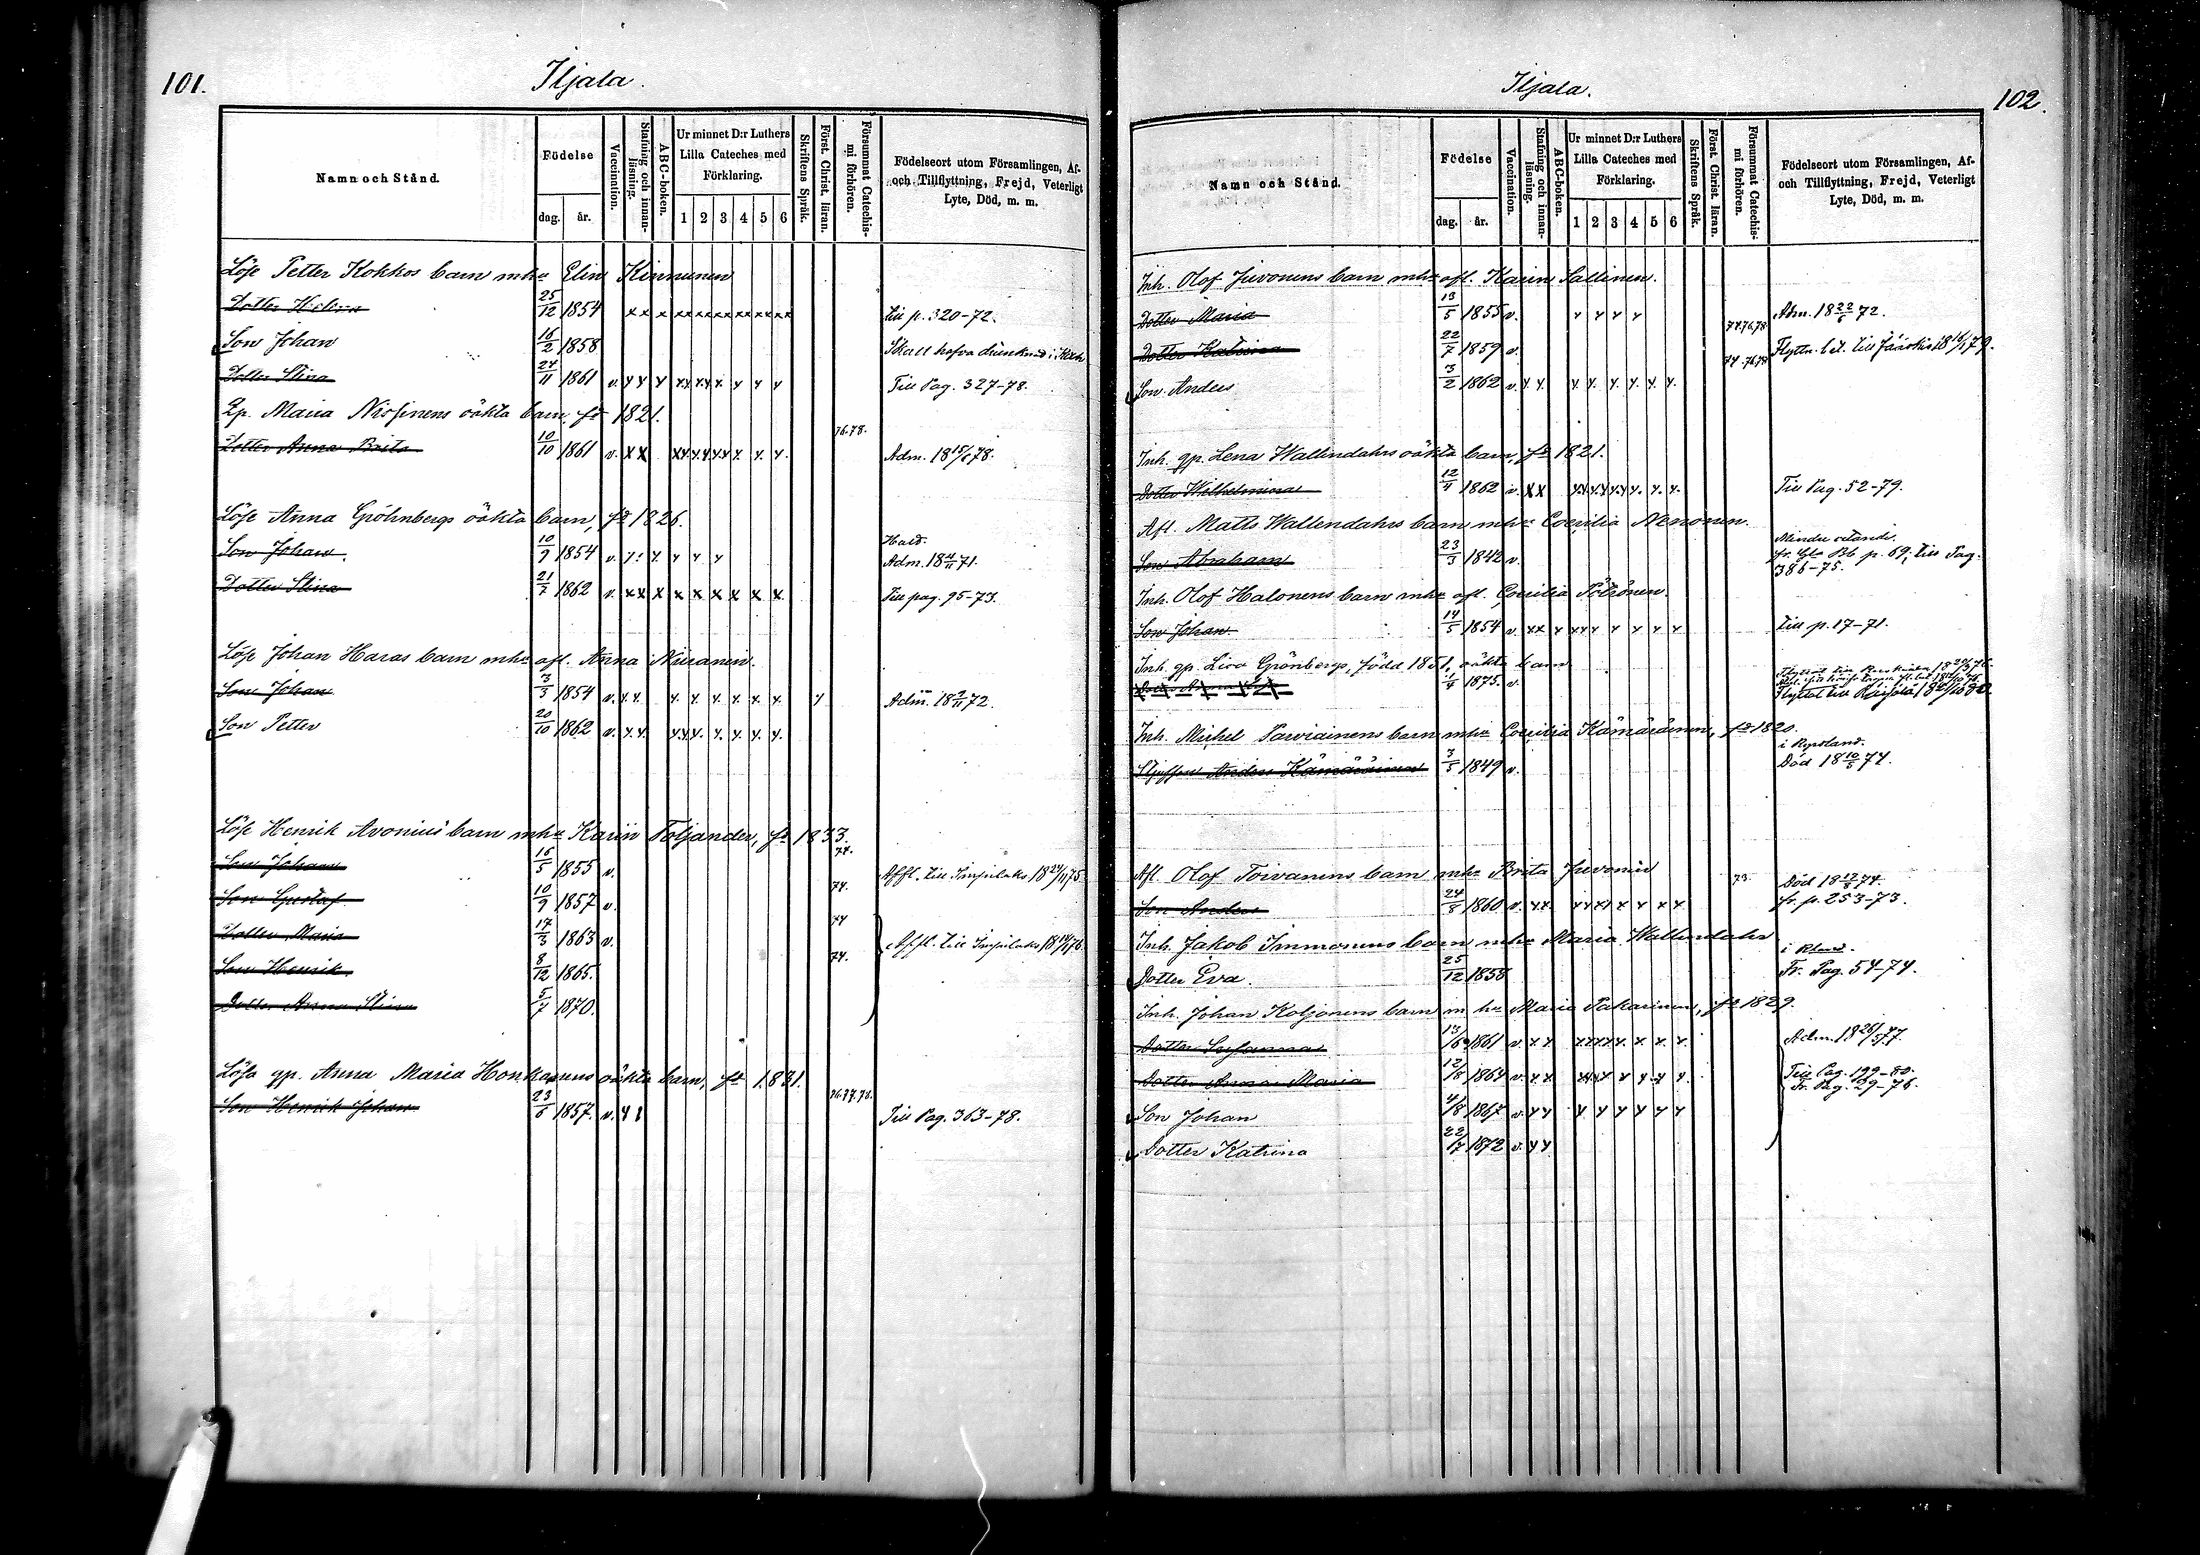 101.
Iljala.
Namn och Stånd.
Födelse
dag.
år.
Vaccination.
Stafning och innan-
läsning.
ABC-boken.
Ur minnet D:r Luthers
Lilla Cateches med
Förklaring.
1 2 3 4 5 6
Skriftens Språk.
Först. Christ. läran.
Försummat Catechis-
mi förhören.
Födelseort utom Församlingen, Af-
och Tillflyttning, Frejd, Veterligt
Lyte, Död, m. m.
Löse Petter Kokkos barn mhu Elin Kinnunen
Dotter Helena 25/12 1854 x x x x x x x x x x x x till p. 320-72.
Son Johan 16/2 1858 Skall hafva drunknat i
Dotter Stina 24/11 1861 v. x x x x x x x x x x x Till Pag. 327-78.
Maria Nissinens oäkta barn, fd 1821.
Dotter Anna Brita 10/10 1861 v. x x x x x x x x x x x 76.78. Adm. 18 15/6 78.
Löse Anna Gröhnbergs oäkta barn, fd 1826.
Son Johan 10/9 1854 v. x x x x x Adm. 18 4/11 71.
Dotter Stina 21/7 1862 v. x x x x x x x x x Till pag. 95-73.
Löse Johan Haras barn mhu afl. Anna Niiranen.
Son Johan 3/3 1854 v. x x x x x x x x x Adm. 18 2/11 72.
Son Petter 20/10 1862 v. x x x x x x x x x
Löse Henrik Avonius barn mhu Karin Toljander, fd 1833.
Son Johan 16/5 1855 v. 74. Affl. till Impilaks 18 24/11 75
Son Gustaf 10/9 1857 v. 74.
Dotter Maria 17/3 1863 v. 74 Affl. till Impilaks 18 76.
Son Henrik 8/12 1865. 74.
Dotter Anna Stina 5/7 1870.
Lösa gp. Anna Maria Honkanens oäkta barn, fd 1831.
Son Henrik Johan 23/6 1857. v. x x 76.77.78. Till Pag. 363-78.
Iljala.
102.
Namn och Stånd.
Födelse
dag.
år.
Vaccination.
Stafning och innan-
läsning.
ABC-boken.
Ur minnet D:r Luthers
Lilla Cateches med
Förklaring.
1 2 3 4 5 6
Skriftens Språk.
Först. Christ. läran.
Försummat Catechis-
mi förhören.
Födelseort utom Församlingen, Af-
och Tillflyttning, Frejd, Veterligt
Lyte, Död, m. m.
Inh. Olof Juvonens barn mhu afl. Karin Sallinen.
Dotter Maria 13/5 1855 v. x x x x Adm. 18 22/6 72.
Dotter Katrina 22/7 1859 v. 74.76.78 Flyttn. bet. till Jääskis 18 79.
Son Anders 3/2 1862 v. x x x x x x x x 74.76.78
Inh. gp. Lena Wallendahrs oäkta barn, fd 1821.
Dotter Wilhelmina 12/4 1862 v. x x x x x x x x x x Till Pag. 52-79.
Afl. Matts Wallendahrs barn mhu Coecilia Nenonen
Son Abraham 23/3 1842 v. Mindre vetande.
fr. Gla Bb p. 69; till Pag.
386-75.
Inh. Olof Halonens barn mhu afl. Coecilia Pötrönen.
Son Johan 14/5 1854 v. x x x x x x x x x x till p. 17-71.
Inh. gp. Lisa Grönbergs, född 1851, oäkta barn
1/4 1875. v.
Inh. Michel Parviainens barn mhu Coecilia Kämäräinen, fd 1820.
Styfson Anders Kämäräinen 3/3 1849 v. i Ryssland.
Död 18 10/5 74.
Afl. Olof Toivanens barn mhu Brita Juvonen
Son Anders 24/8 1860 v. x x x x x x x x x 73. Död 18 12/8 74.
fr. p. 253-73.
Inh. Jakob Immonens barn mhu Maria Wallendahr
Dotter Eva. 25/12 1858 Fr. Pag. 54-74.
Inh. Johan Koljonens barn m hu Maria Pakarinen, fd 1829.
Dotter Susanna 13/6 1861 v. x x x x x x x x x x Adm. 18 26/5 77.
Dotter Anna Maria 12/8 1864 v. x x x x x x x x x Till Pag. 199-80.
Fr. Pag. 29-76.
Son Johan 4/8 1867 v. x x x x x x x x
Dotter Katrina 22/7 1872 v. x x